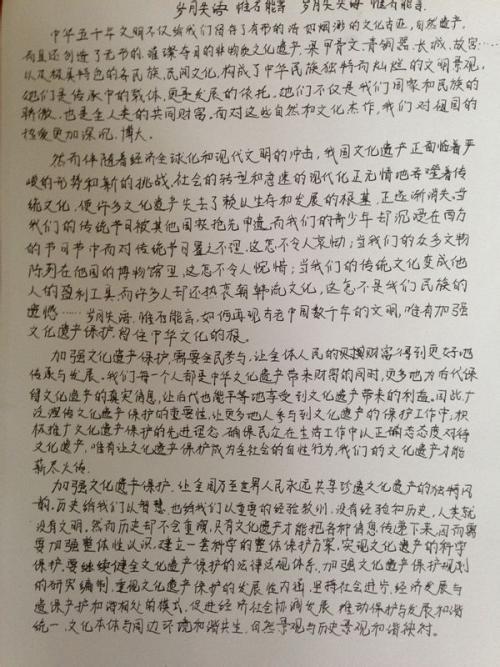 岁月失语 惟石能言 岁月失语 惟石能言
中华五千年文明不仅给我们留存了有形的浩如烟海的文化古迹,自然遗产,
而且还创造了无形的、璀璨夺目的非物质文化遗产。甲骨文、青铜器、长城、故宫……
以及极具特色的各民族、民间文化,构成了中华民族独特而灿烂的文明景观。
她们是传承中的载体,更是发展的依托。她们不仅是我们国家和民族的
骄傲,也是全人类的共同财富,面对这些自然和文化杰作,我们对祖国的
热爱更加深沉、博大。
然而伴随着经济全球化和现代文明的冲击,我国文化遗产正面临着严
峻的形势和新的挑战,社会的转型和急速的现代化正无情地吞噬着传
统文化,使许多文化遗产失去了赖以生存和发展的根基,正逐渐消失。当
我们的传统节日被其他国家抢先申遗,而我们的青少年却沉浸在西方
的节日节中而对传统节日置之不理,这怎不令人哀恸;当我们的众多文物
陈列在他国的博物馆里,这怎不令人惋惜;当我们的传统文化变成他
人的盈利工具,而许多人却还热衷韩流文化,这怎不是我们民族的
遗憾……岁月失语,惟石能言,如何再现存在中国数千年的文明,唯有加强
文化遗产保护,留住中华文化的根。
加强文化遗产保护,需要全民参与,让全体人民的财富得到更好地
传承与发展。我们每一个人都是中华文化遗产带来财富的同时,更多地为后代保
留文化遗产的真实信息,让后代也能平等地享受到文化遗产带来的利益。因此广
泛宣传文化遗产保护的重要性,让更多地人参与到文化遗产的保护工作中,积
极推广文化遗产保护的先进理念,确保民众在生活工作中以正确态度对待
文化遗产,唯有让文化遗产保护成为全社会的自性行为,我们的文化遗产才能
薪尽火传。
加强文化遗产保护,让全国乃至世界人民永远共享珍遗文化遗产的独特闪
韵。历史给我们以智慧,也给我们以重要的经验教训,没有经验和历史,人类就
没有文明。然而历史却不会重演,只有文化遗产才能把各种信息传递下来,因而需
要加强整体性认识,建立一套科学的整体保护方案,实现文化遗产的科学
保护,要继续健全文化遗产保护的法律法规体系,加强文化遗产保护规划
的研究编制,重视文化遗产保护的发展性内涵,坚持社会进步、经济发展与
遗产保护和谐相处的模式,促进经济社会协调发展,推动保护与发展和谐
统一,文化本体与周边环境和谐共生,自然景观与历史景观和谐映衬。